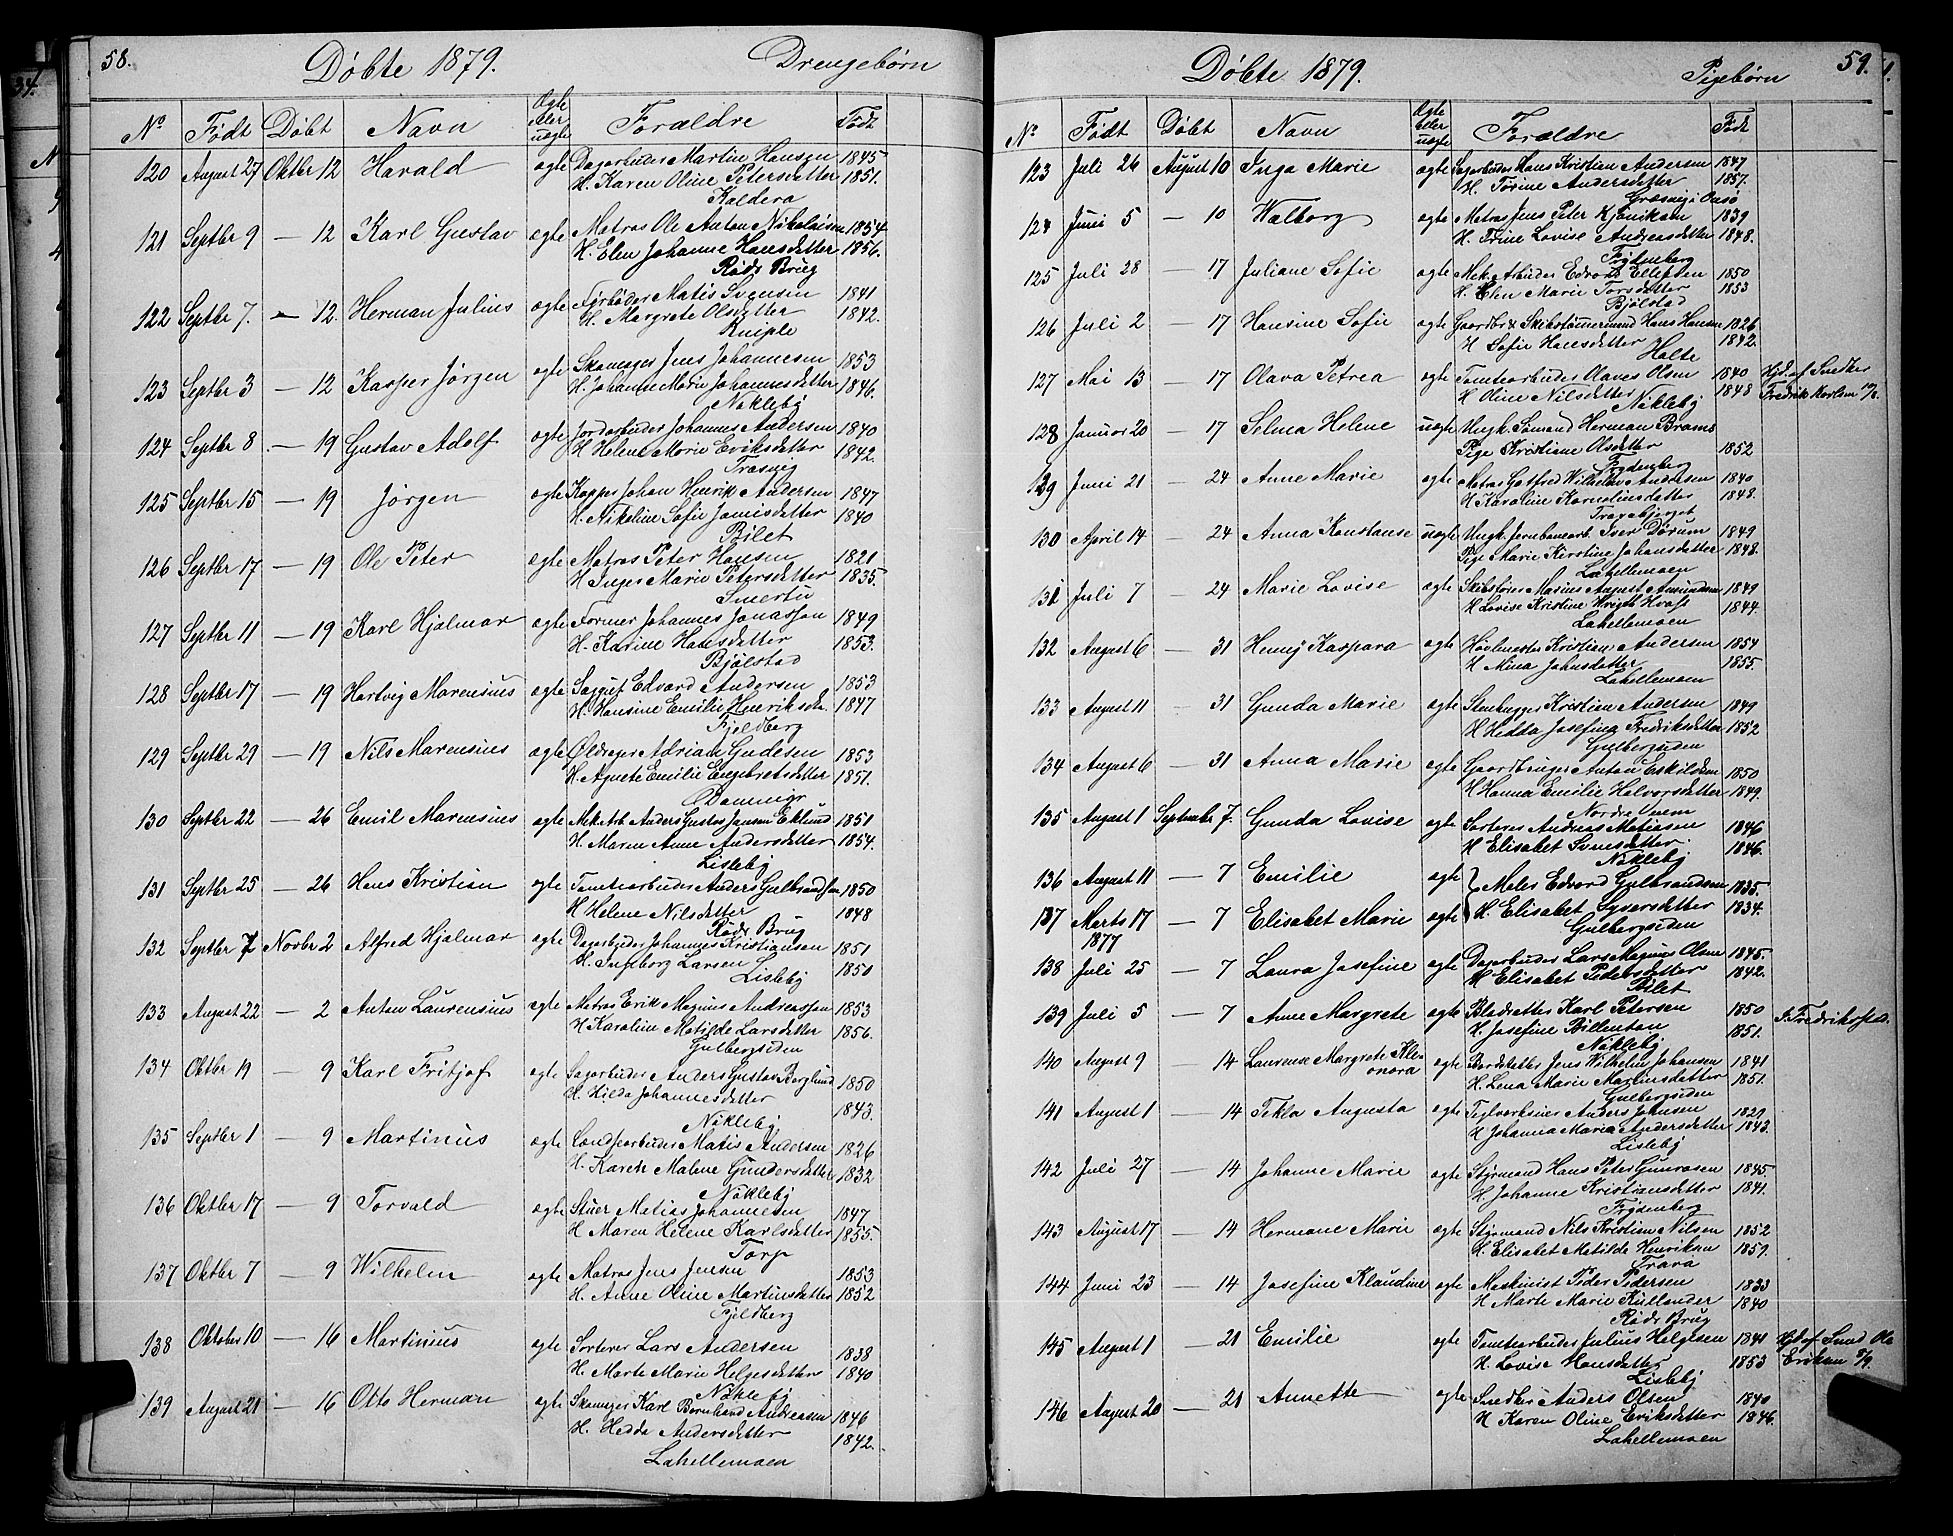 58.
Døbte 1879.
Drengebørn
No Født Døbt Navn Ægte eller uægte Forældre Født
120 August 27 Oktbr 12 Harald ægte Dagarbeider Martin Hansen 1845
H. Karen Oline Petersdatter 1851.
Kaldera
121 Septbr 9 — 12 Karl Gustav ægte Matros Ole Anton Nikolaisen 1854
H. Elen Johanne Hansdatter 1856.
Røds Brug
122 Septbr 7. — 12. Herman Julius ægte Fyrbøder Matis Svensen 1841
H. Margrete Olsdatter 1842.
Kniple
123 Septbr 3 — 12 Kasper Jørgen ægte Skomager Jens Johannesen 1853
H. Johanne Marie Johannesdatter 1846.
Nøkleby
124 Septbr 8. — 19 Gustav Adolf ægte Jordarbeider Johannes Andersen 1840
H Helene Marie Eriksdatter 1842.
Trosvig
125 Septbr 15 — 19 Jørgen ægte Kapper Johan Henrik Andersen 1847
H. Nikoline Sofie 1840
Bilet
126 Septbr 17 — 19 Ole Peter ægte Matros Peter Hansen 1821
H Inger Marie Petersdatter 1835.
Smertu
127 Septbr 11 — 19 Karl Hjalmar ægte Former Johannes Jonassen 1849
H. Karine Hansdatter 1853.
Bjølstad
128 Septbr 17 — 19 Hartvig Marensius ægte Sagmf Edvard Andersen 1853
H. Hansine Emilie Henriksdtr. 1847
Fjeldberg
129 Septbr 29 — 19 Nils Marensius ægte Øldrager Adrian Gudesen 1853
H. Agnete Emilie Engebretsdatter 1851.
130 Septbr 22 — 26 Emil Marensius ægte Mek Arb Anders Gustav Jansen Eklund 1851
H. Maren Anne Andersdatter 1854.
Lisleby
131 Septbr 25 — 26 Hans Kristian ægte Tomtearbeider Anders Gulbrandsen 1850
H Helene Nilsdatter 1848
Røds Brug
132 Septbr 7 Novbr 2 Alfred Hjalmar ægte Dagarbeider Johannes Kristiansen 1851
H. Ingeborg Larsen 1850
Lisleby
133 August 22 — 2 Anton Laurensius ægte Matros Erik Magnus Andreassen 1853
H Karoline Matilde Larsdatter 1856.
Gulbergsiden
134 Oktbr 19 — 9 Karl Fritjof ægte Sagarbeider Anders Gustav Berglund 1850
H. Hilda Johannesdatter 1843.
Nøkleby
135 Septbr 1 — 9 Martinius ægte Landarbeider Matis Andersen 1826
H. Karen Malene Gundersdatter 1832
Nøkleby
136 Oktbr 17 — 9 Torvald ægte Stuer Matias Johannesen 1847
H Maren Helene Karlsdatter 1855.
Torp
137 Oktbr 7 — 9 Wilhelm ægte Matros Jens Jensen 1853
H. Anne Oline Martinsdatter 1852
Fjeldberg
138 Oktober 10 — 16 Martinius ægte Sorterer Lars Andersen 1838
H. Marte Marie Helgesdatter 1840
Nøkleby
139 August 21 — 16 Otto Herman ægte Skomager Karl Bernhard Andreasen 1846
H. Hedda Andersdatter 1842.
Lahellemoen
59.
Døbte 1879.
Pigebørn
No Født Døbt Navn Ægte eller uægte Forældre Født
123 Juli 26 August 10 Inga Marie ægte Sagarbeider Hans Kristian Andersen 1847
H. Torine Andersdatter 1857.
Græsvig i Onsø
124 Juni 5 — 10 Walborg ægte Matros Jens Peter 1839
H. Trine Lovise Andreasdatter 1848.
Frydenberg
125 Juli 28 — 17 Juliane Sofie ægte Mek. Arbeider Edvard Ellefsen 1850
H. Elen Marie Torsdatter 1853
Bjølstad
126 Juli 2 — 17 Hansine Sofie ægte Gaardbr & Skibstømmermand Hans Hansen 1826
H Sofie Hansdatter 1842.
Holte
127 Mai 13 — 17 Olava Petrea ægte Tomtearbeider Olaves Olsen 1840 Hjd. af Snedker
H Oline Nilsdatter 1848 Fredrik Karlsen
Nøkleby
128 Januar 20 — 17 Selma Helene uægte Ungk. Sømand Herman Brams
Pige Kristiane Olsdatter 1852
Frydenberg
129 Juni 21 — 24 Anne Marie ægte Matros Gotfred Wilhelm Andersen 1840
H Karoline Karneliusdatter 1848.
130 April 14 — 24 Anna Konstanse uægte Ungk. Jernbanearb. Iver Dørum 1849
Pige Marie Kirstine Johansdatter 1848.
Lahellemoen
131 Juli 7 — 24 Marie Lovise ægte Skibsfører Marius August Amundsen 1849
H Lovise Kristine 1844.
Lahellemoen
132 August 6 — 31 Henny Kaspara ægte Høvlmester Kristian Andersen 1854
H Mina Johnsdatter 1855.
Lahellemoen
133 August 11 — 31 Gunda Marie ægte Stenhugger Kristian Andersen 1849
H Hedda Josefine Fredriksdatter 1852
Gulbergsiden
134 August 6 — 31 Anna Marie ægte Gaardbruger Anton Eskildsen 1850
H Hanna Emilie Halvorsdatter 1849.
Nordre Neem
135 August 1 September 7. Gunda Lovise ægte Sorterer Andreas Matiasen 1846
H Elisabet Svensdatter 1846.
Nøkleby
136 August 11 — 7 Emilie ægte } Møller Edvard Gulbrandsen 1835.
137 Marts 17 1877 — 7 Elisabet Marie ægte H. Elisabet Syversdatter 1834.
Gulbergsiden
138 Juli 25 — 7 Laura Josefine ægte Dagarbeider Lars Magnus Olsen 1845.
H Elisabet Pedersdatter 1842.
Bilet
139 Juli 5 — 7 Anne Margrete ægte Bladsetter Karl Petersen 1850 i Fredrikstad.
H. Josefine Billenton 1851.
Nøkleby
140 August 9 — 14 Laurense Margrete Kleonora ægte Bordstabler Jens Wilhelm Johansen 1841
H. Lena Marie Martinsdatter 1851.
Gulbergsiden
141 August 1 — 14 Tekla Augusta ægte Teglverkseier Anders Johnsen 1829
H Johanna Maria Andersdatter 1843.
Lisleby
142 Juli 27 — 14 Johanne Marie ægte Styrmand Hans Peter Gunrosen 1845
H. Johanne Kristiansdatter 1841.
Frydenberg
143 August 17 — 14 Hermane Marie ægte Styrmand Nils Kristian Nilsen 1852
H. Elisabet Matilde Henriksen 1859.
Trara
144 Juni 23 — 14 Josefine Klaudine ægte Maskinist Peder Pedersen 1833
H Marte Marie Kullander 1840
Røds Brug
145 August 1 — 21 Emilie ægte Tomtearbeider Julius Helgesen 1841 Hjd. af Smed Ole
H. Lovise Hansdatter 1853 Eriksen
Lisleby
146 August 20 — 21 Annette ægte Snedker Anders Olsen 1849
H Karen Oline Eriksdatter 1846.
Lahellemoen